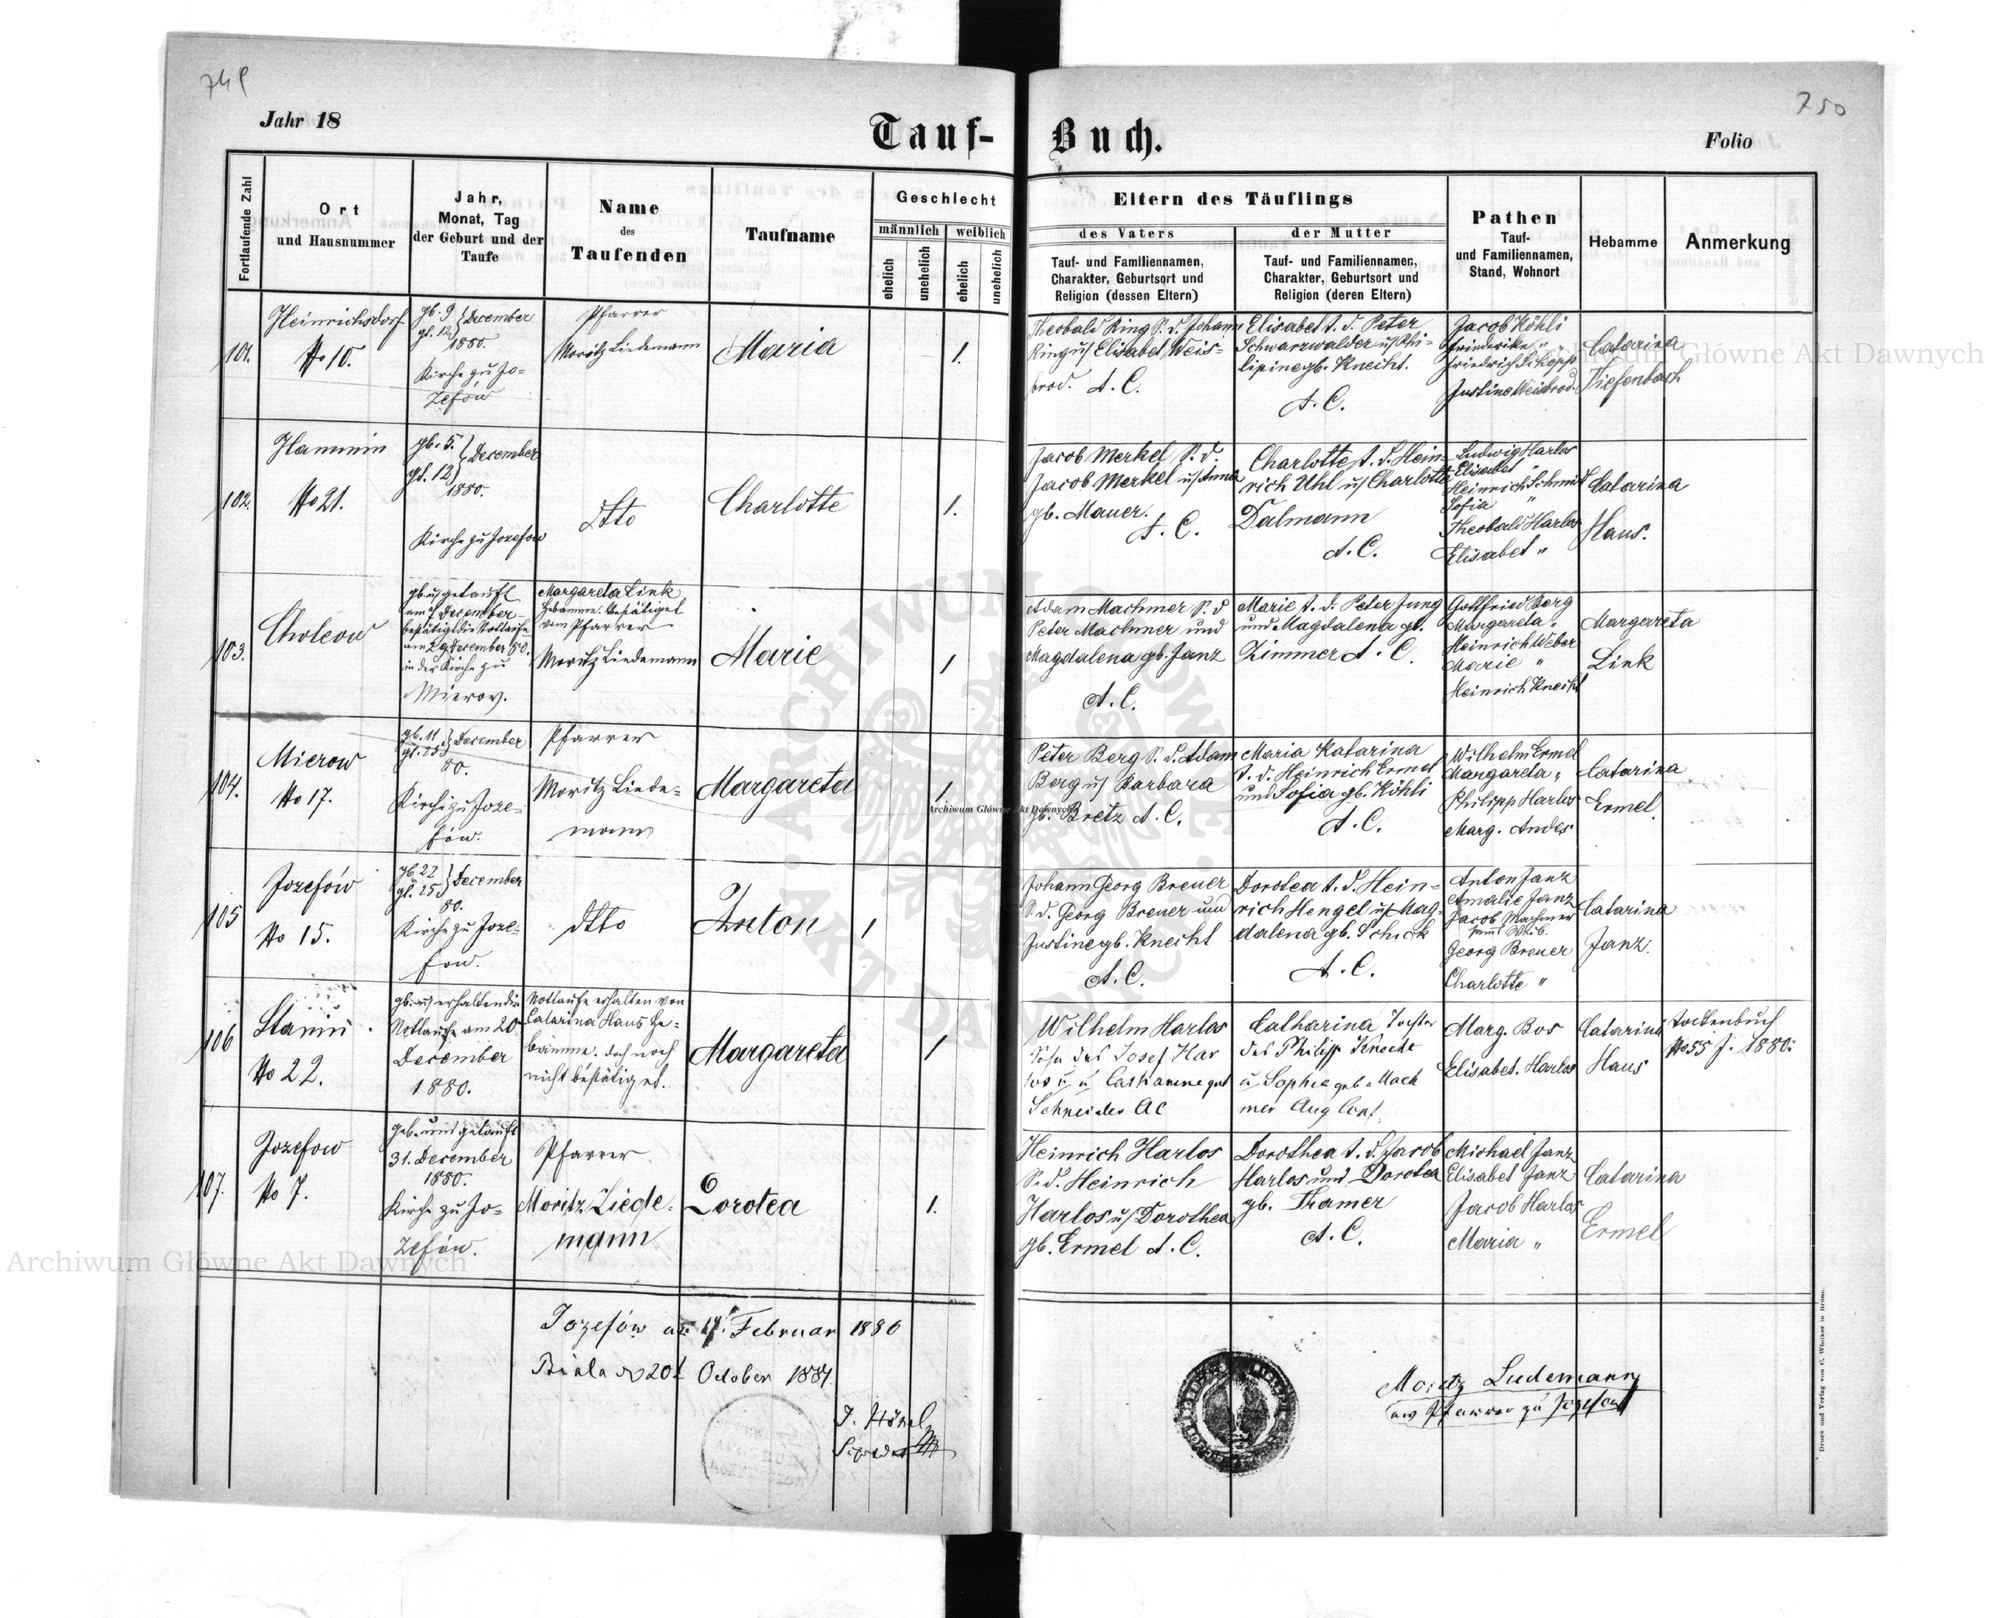 749
750
Jahr 18
Tauf-Buch.
Folio
Fortlaufende Zahl
Ort
und Hausnummer
Jahr,
Monat, Tag
der Geburt und der
Taufe
Name
des
Taufenden
Taufname
Geschlecht
männlich
weiblich
ehelich
unehelich
ehelich
unehelich
Eltern des Täuflings
des Vaters
Tauf- und Familiennamen,
Charakter, Geburtsort und
Religion (dessen Eltern)
der Mutter
Tauf- und Familiennamen,
Charakter, Geburtsort und
Religion (deren Eltern)
Pathen
Tauf-
und Familiennamen,
Stand, Wohnort
Hebamme
Anmerkung
101.
Heinrichsdorf
No 10.
gb. 9
gt. 12 } December
1880.
Kirche zu Jo-
zefów
Pfarrer
Moritz Liedemann
Maria
1.
Theobald Ring S. d. Johann
Ring u/ Elisabet Weis-
brod. A. C.
Elisabet t. d. Peter
Schwarzwalder u/ Phi-
lipine gb. Knecht.
A. C.
Jacob Köhli
Friederike "
Friedrich
Justine Weisbrod.
Catarina
Tiefenbach
102.
Hanunin
No 21.
gb. 5.
gt. 12 } December
1880.
Kirche zu Jozefow
dtto
Charlotte
1.
Jacob Merkel S. d.
Jacob Merkel u/ Anna
gb. Mauer.
A. C.
Charlotte t. d. Hein-
rich Uhl u/ Charlotte
Dalmann
A. C.
Ludwig Harlos
Elisabet "
Heinrich Schmidt
Sofia "
Theobald Harlos
Elisabet "
Catarina
Haus.
103.
Cholcow
gb. u/ getauft
am December
bestätigt die Nottaufe
am 29 December 80.
in der Kirche zu
Mierov.
Margareta Link
Hebamme. Bestätiget
vom Pfarrer
Moritz Liedemann
Marie
1
Adam Machmer S. d
Peter Machmer und
Magdalena gb. Janz
A. C.
Marie t. d. Peter Jung
und Magdalena gb.
Zimmer A. C.
Gottfried Berg
Margareta "
Heinrich Weber
Marie "
Heinrich Knecht
Margareta
Link
104.
Mierow
No 17.
gb. 11
gt. 25 } December
80.
Kirche zu Joze-
fów.
Pfarrer
Moritz Liede-
mann
Margareta
1.
Peter Berg S. d. Adam
Berg u/ Barbara
gb. Bretz A. C.
Maria Katarina
t. d. Heinrich Ermel
und Sofia gb. Köhli
A. C.
Wilhelm Ermel
Margareta "
Philipp Harlos
Marg. Andes
Catarina
Ermel.
105
Jozefów
No 15.
gb 22
gt. 25 } December
80.
Kirche zu Joze-
fow.
dtto
Anton
1
Johann Georg Breuer
S. d. Georg Breuer und
Justine gb. Knecht
A. C.
Dorotea t. d. Hein-
rich Hengel u/ Mag-
dalena gb. Schick
A. C.
Anton Janz
Amalie Janz
Jacob Machmer
Georg Breuer
Charlotte "
Catarina
Janz.
106
Stanin
No 22.
gb. u/ erhalten die
Nottaufe am 20
December
1880.
Nottaufe erhalten von
Catarina Haus He-
bamme. doch noch
nicht bestätiget.
Margareta
1
Wilhelm Harlos
Sohn des Josef Har
los u. Catharine geb
Schneider AC
Catharina Tochter
des Philipp Knecht
u. Sophie geb. Mach
mer Aug Conf.
Marg. Bos
Elisabet. Harlos
Catarina
Haus
Todtenbuch
No 55 J. 1880.
107.
Jozefow
No 7.
Geb. und getauft
31. December
1880.
Kirche zu Jo-
zefów.
Pfarrer
Moritz Liede-
mann
Dorotea
1.
Heinrich Harlos
S. d. Heinrich
Harlos u/ Dorothea
gb. Ermel A. C.
Dorothea t. d. Jacob
Harlos und Dorotea
gb. Tramer
A. C.
Michael Janz
Elisabet Janz
Jacob Harlos
Maria "
Catarina
Ermel
Jozefów 17. Februar 1880
Biala 20t October 1881.
J. Hönel
Moritz Liedemann
ev. Pfarrer zu Jozefow
Druck und Verlag von C. Winiker in Brünn.
Archiwum Główne Akt Dawnych
Archiwum Główne Akt Dawnych
Archiwum Główne Akt Dawnych